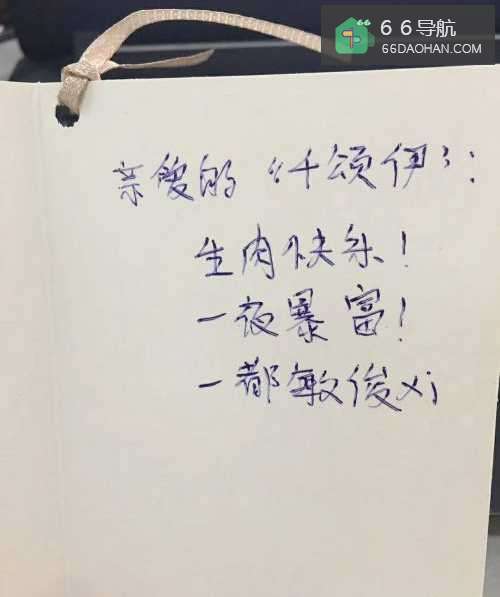 66导航
66DAOHAN.COM
亲爱的“仟颂伊”:
生肉快乐!
一夜暴富!
一都敏俊xi